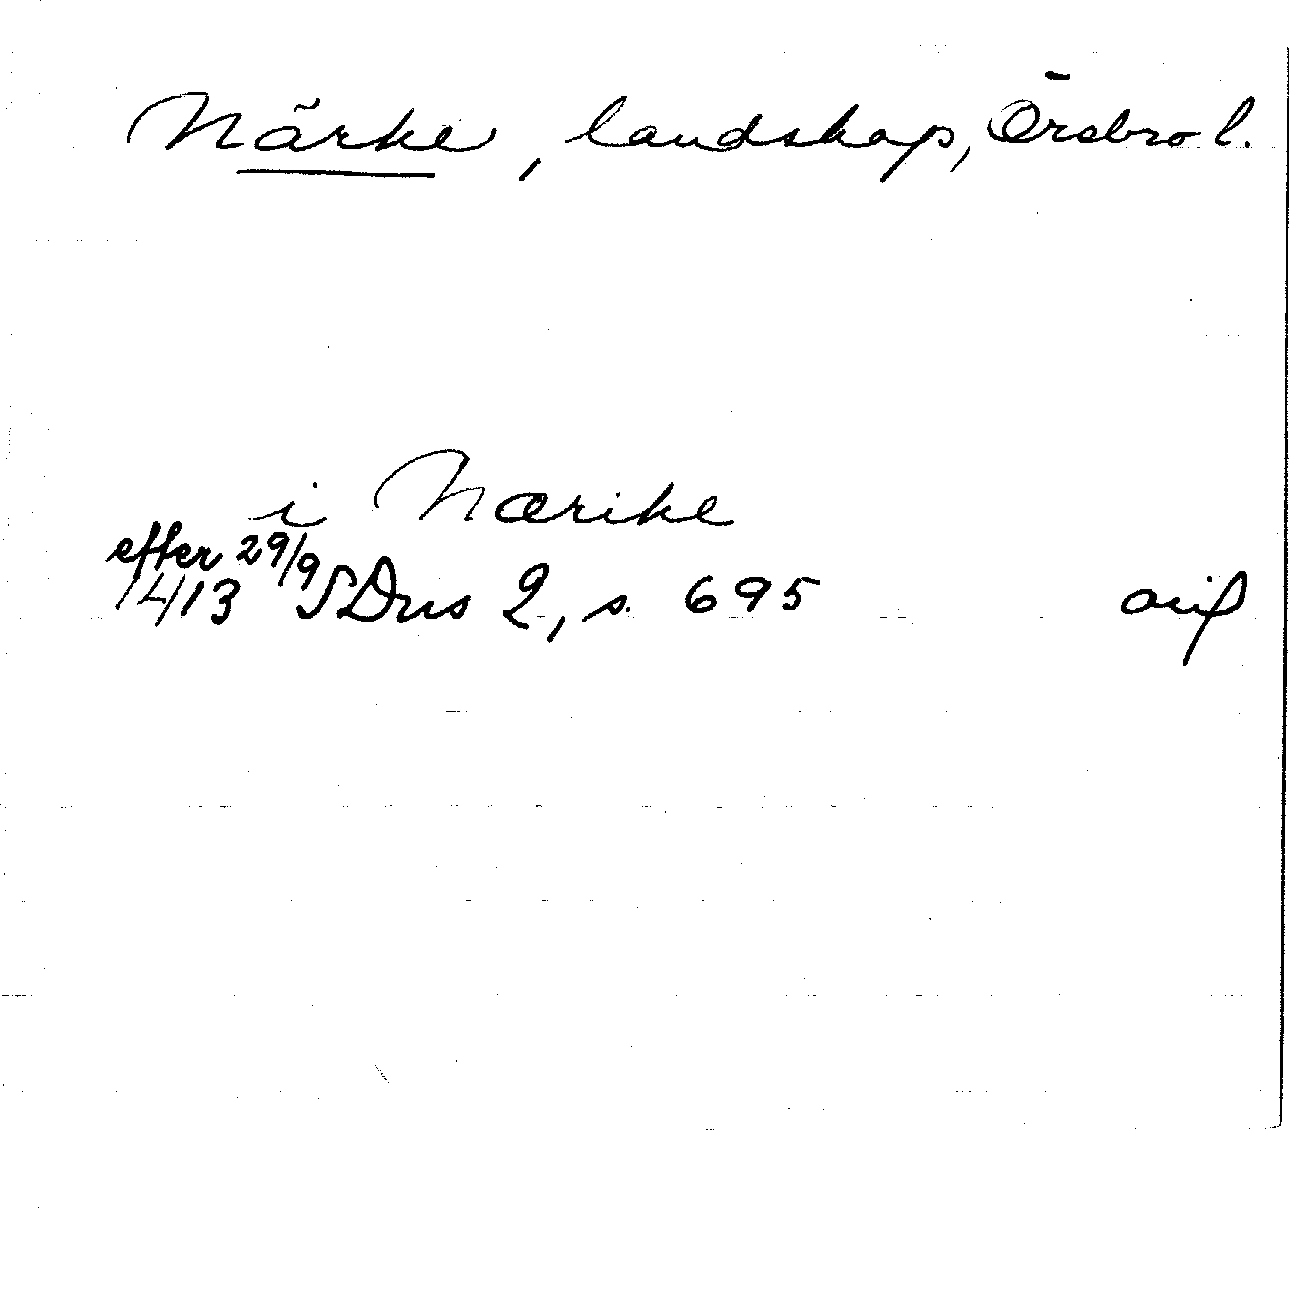 Närke, landskap, Örebro l.
i Nærike
efter 29/9
1413 SDns 2, s. 695 avs